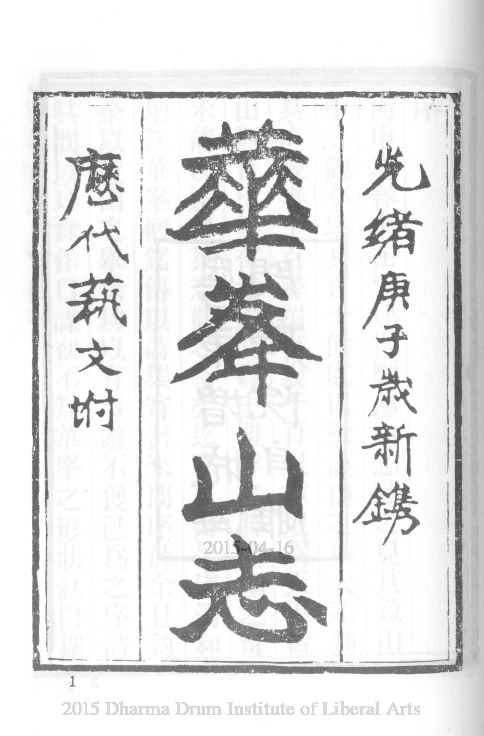 光緒庚子歲新鐫
華峯山志
歷代藝文附
2015-04-16
1
2015 Dharma Drum Institute of Liberal Arts